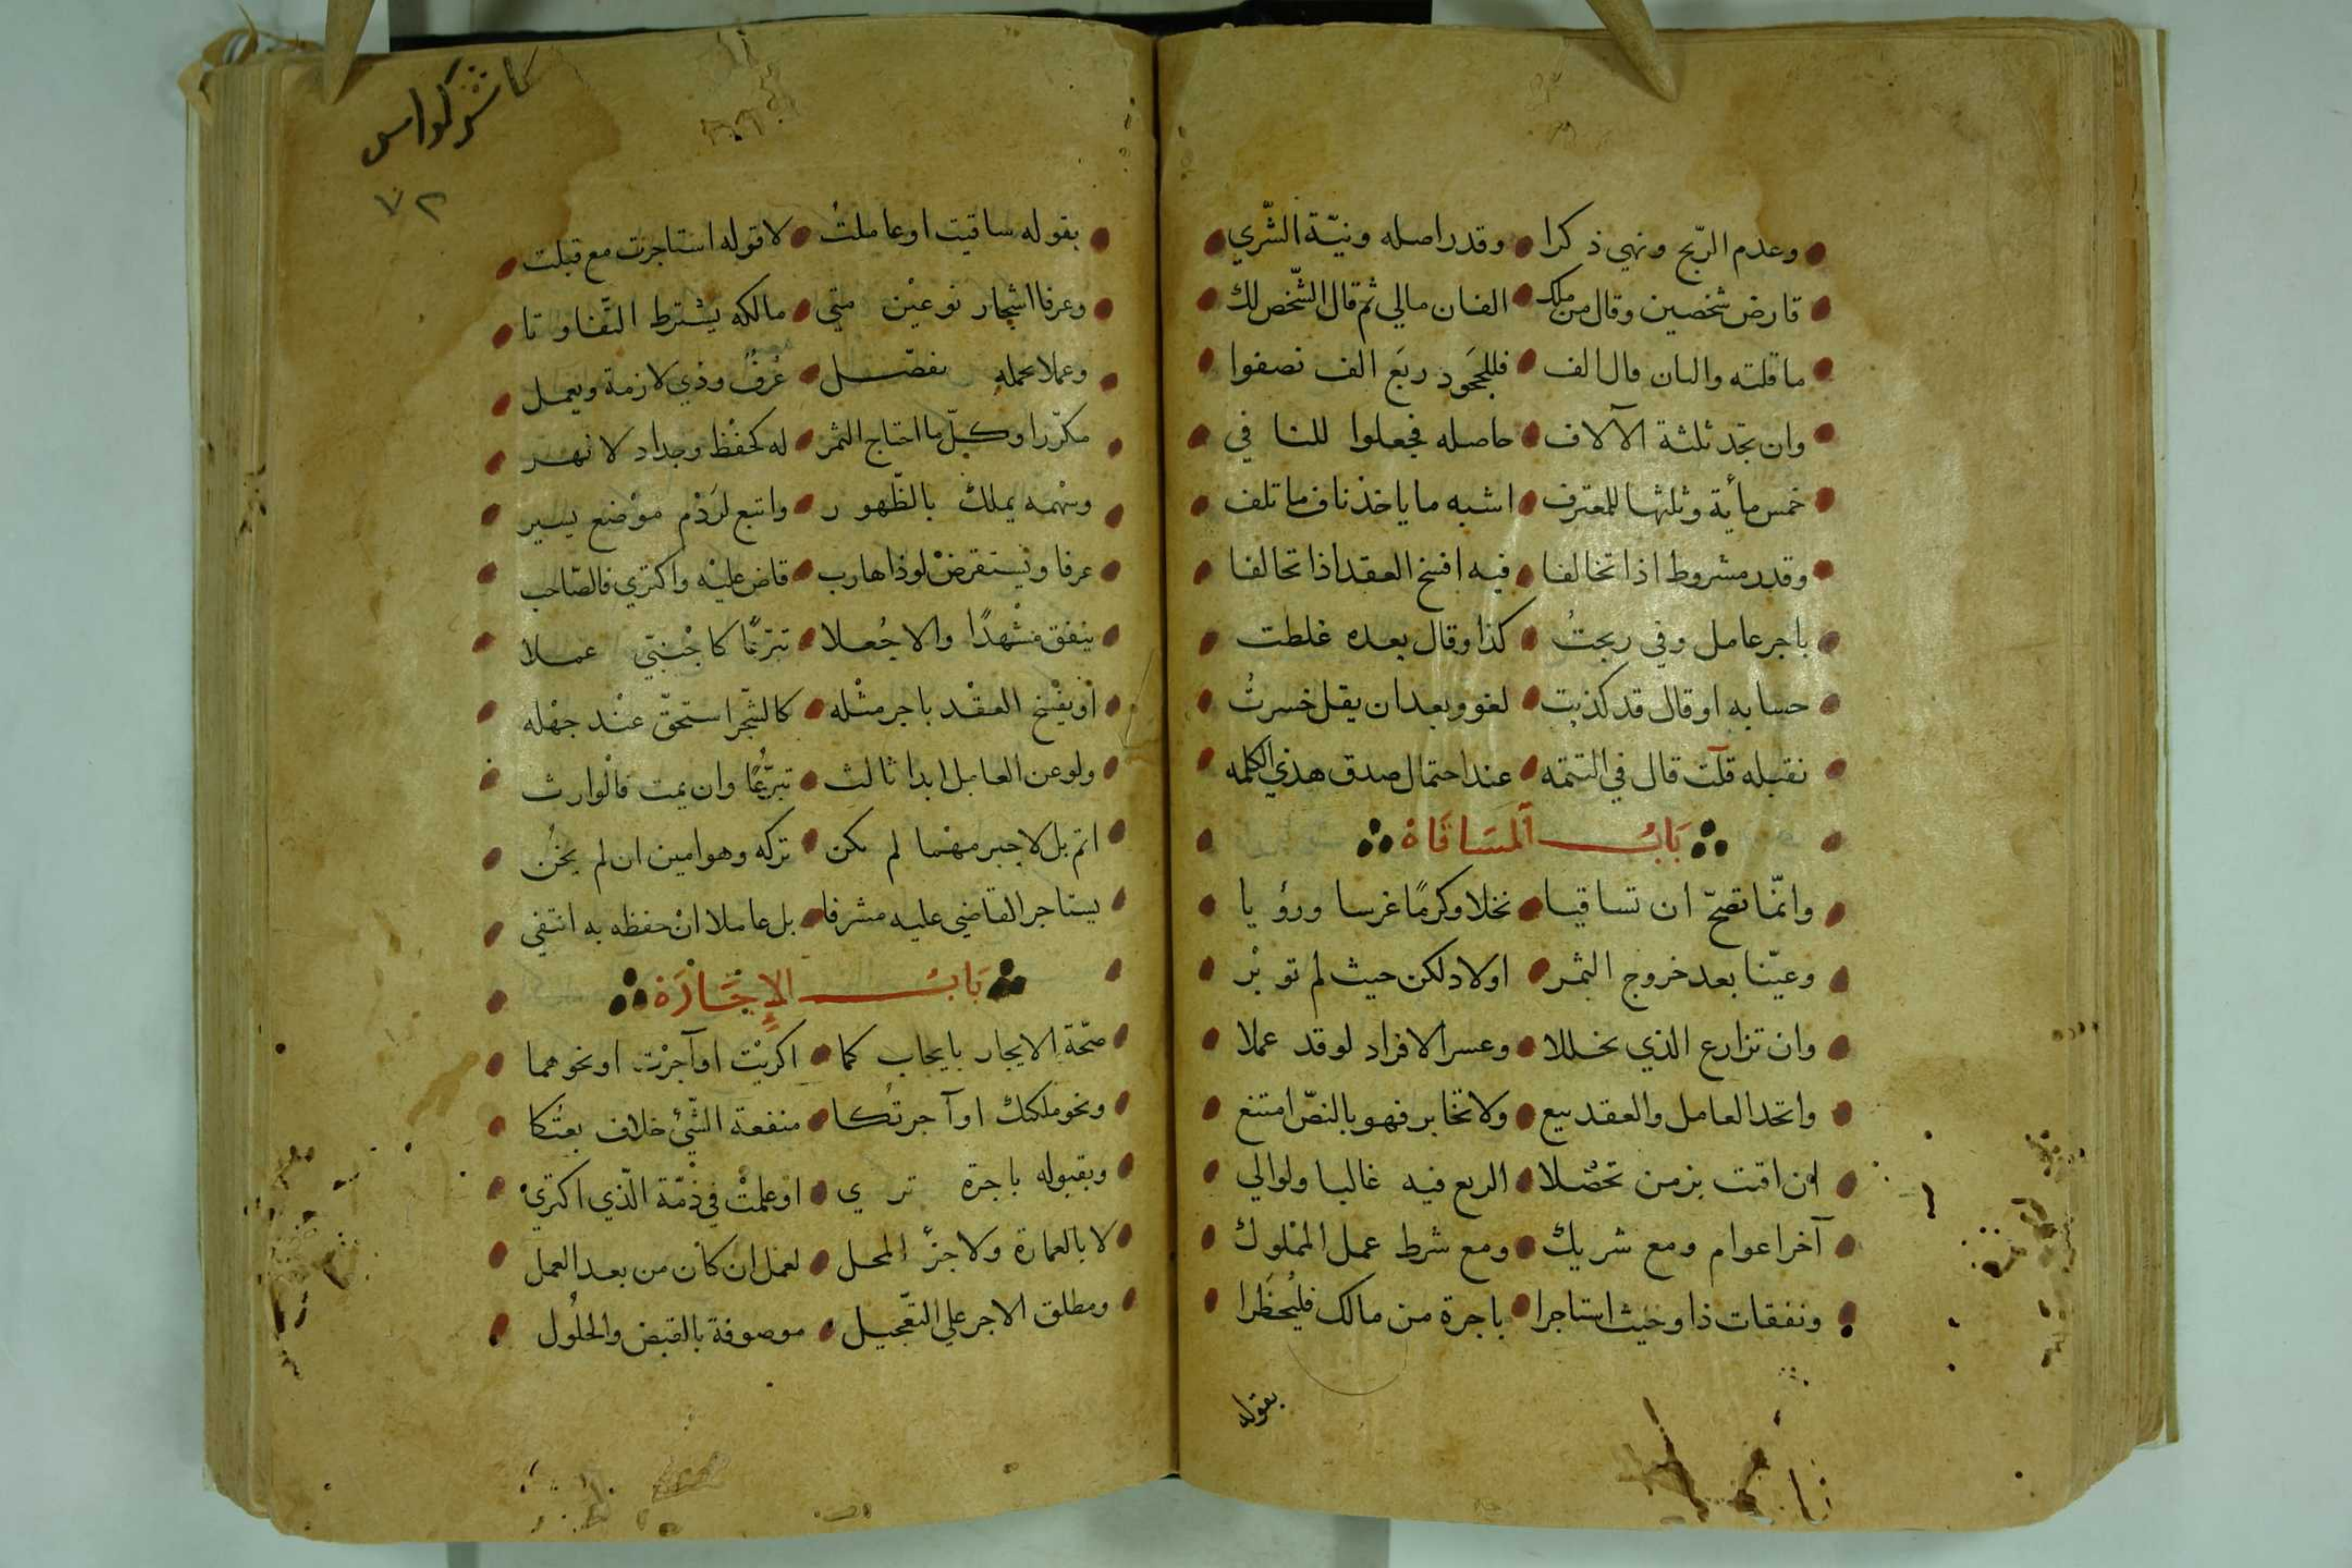 وعدم الربح ونهي ذكرا وقدر اصله ونيّة الشّري
قارض شخصين وقال من ملك الفان مالي ثم قال الشّخص لك
ما قلته والثان قال الف فللجَحود ربَع الف نصفوا
وان تجد ثلثة الآلاف حاصله فجعلوا للنافي
خمس مأية وثلثها للمعترف اشبه ما ياخذ ناف ما تلف
وقدر مشروط اذا تخالفا فيه افسخ العقد اذا تحالفا
باجر عامل وفي ربحتُ كذا وقال بعده غلطت
حسابه او قال قد كذبت لغو وبعد ان يقل خسرتُ
نقبله قلت قال في التتمّه عند احتمال صدق هذي الكلمه
بَابُ المسَاقَاة
وانّما تصحّ ان تساقيا نخلا وكرمًا غرسا ورؤيا
وعيّنا بعد خروج الثمر اولا ولكن حيث لم توبْر
وان تزارع الذي تخللا وعسر الافراد لو قد عملا
واتحد العامل والعقد بيع ولا تخابر فهو بالنصّ امتنع
ان اقتت بزمن تحصّلا الريع فيه غالبا ولو الي
آخر اعوام ومع شريك ومع شرط عمل المملوك
ونفقات ذا وحيث استاجرا باجرة من مالك فليُحظَرا
بقوله
كاشر كواس
٧٢
بقوله ساقيت او عاملتُ لا قوله استاجرت مع قبلت
وعرفا اشجار نوعيْن متي مالكه يشترط التّفاوتا
وعملا بحمله يفصّل عُرفٌ وذي لازمة ويعمل
مكرّرا وكلّ ما احتاج الثمر له كحفْظ وجداد لا نهر
وسهمه يملك بالظّهور واتبع لرَدْم موْضع يسير
عرفا ويستقرضْ لو ذا هارب قاض عليْه واكتري فالصّاحب
ينفق مشْهدًا والا جُعلا تبرّعًا كاجْنبيّ عملا
أو يفْسخ العقْد باجر مثْله كالشّجر استحقّ عنْد جهْله
ولو عن العامل ابدا ثالث تبرُّعًا وان يمت فالوارث
اتم بل لا جبر مهْما لم يكن تركه وهو امين ان لم يخُن
يستاجر القاضي عليه مشرفا بل عاملا انْ حفظه به انتفي
بَابُ الإجَارَة
صحّة الايجار بايجاب كما اكريْت او آجرْت او نحوهما
ونحو ملكتك او آجرتكا منفعة الشّئ خلاف بعتُكا
وبقبوله باجرة تري او علمتْ في ذمّة الّذي اكتريْ
لا بالعمارة ولا جزْ المحل لعمل ان كان من بعد العمل
ومطلق الاجر علي التّعجيل موصوفة بالقبض والحلُول